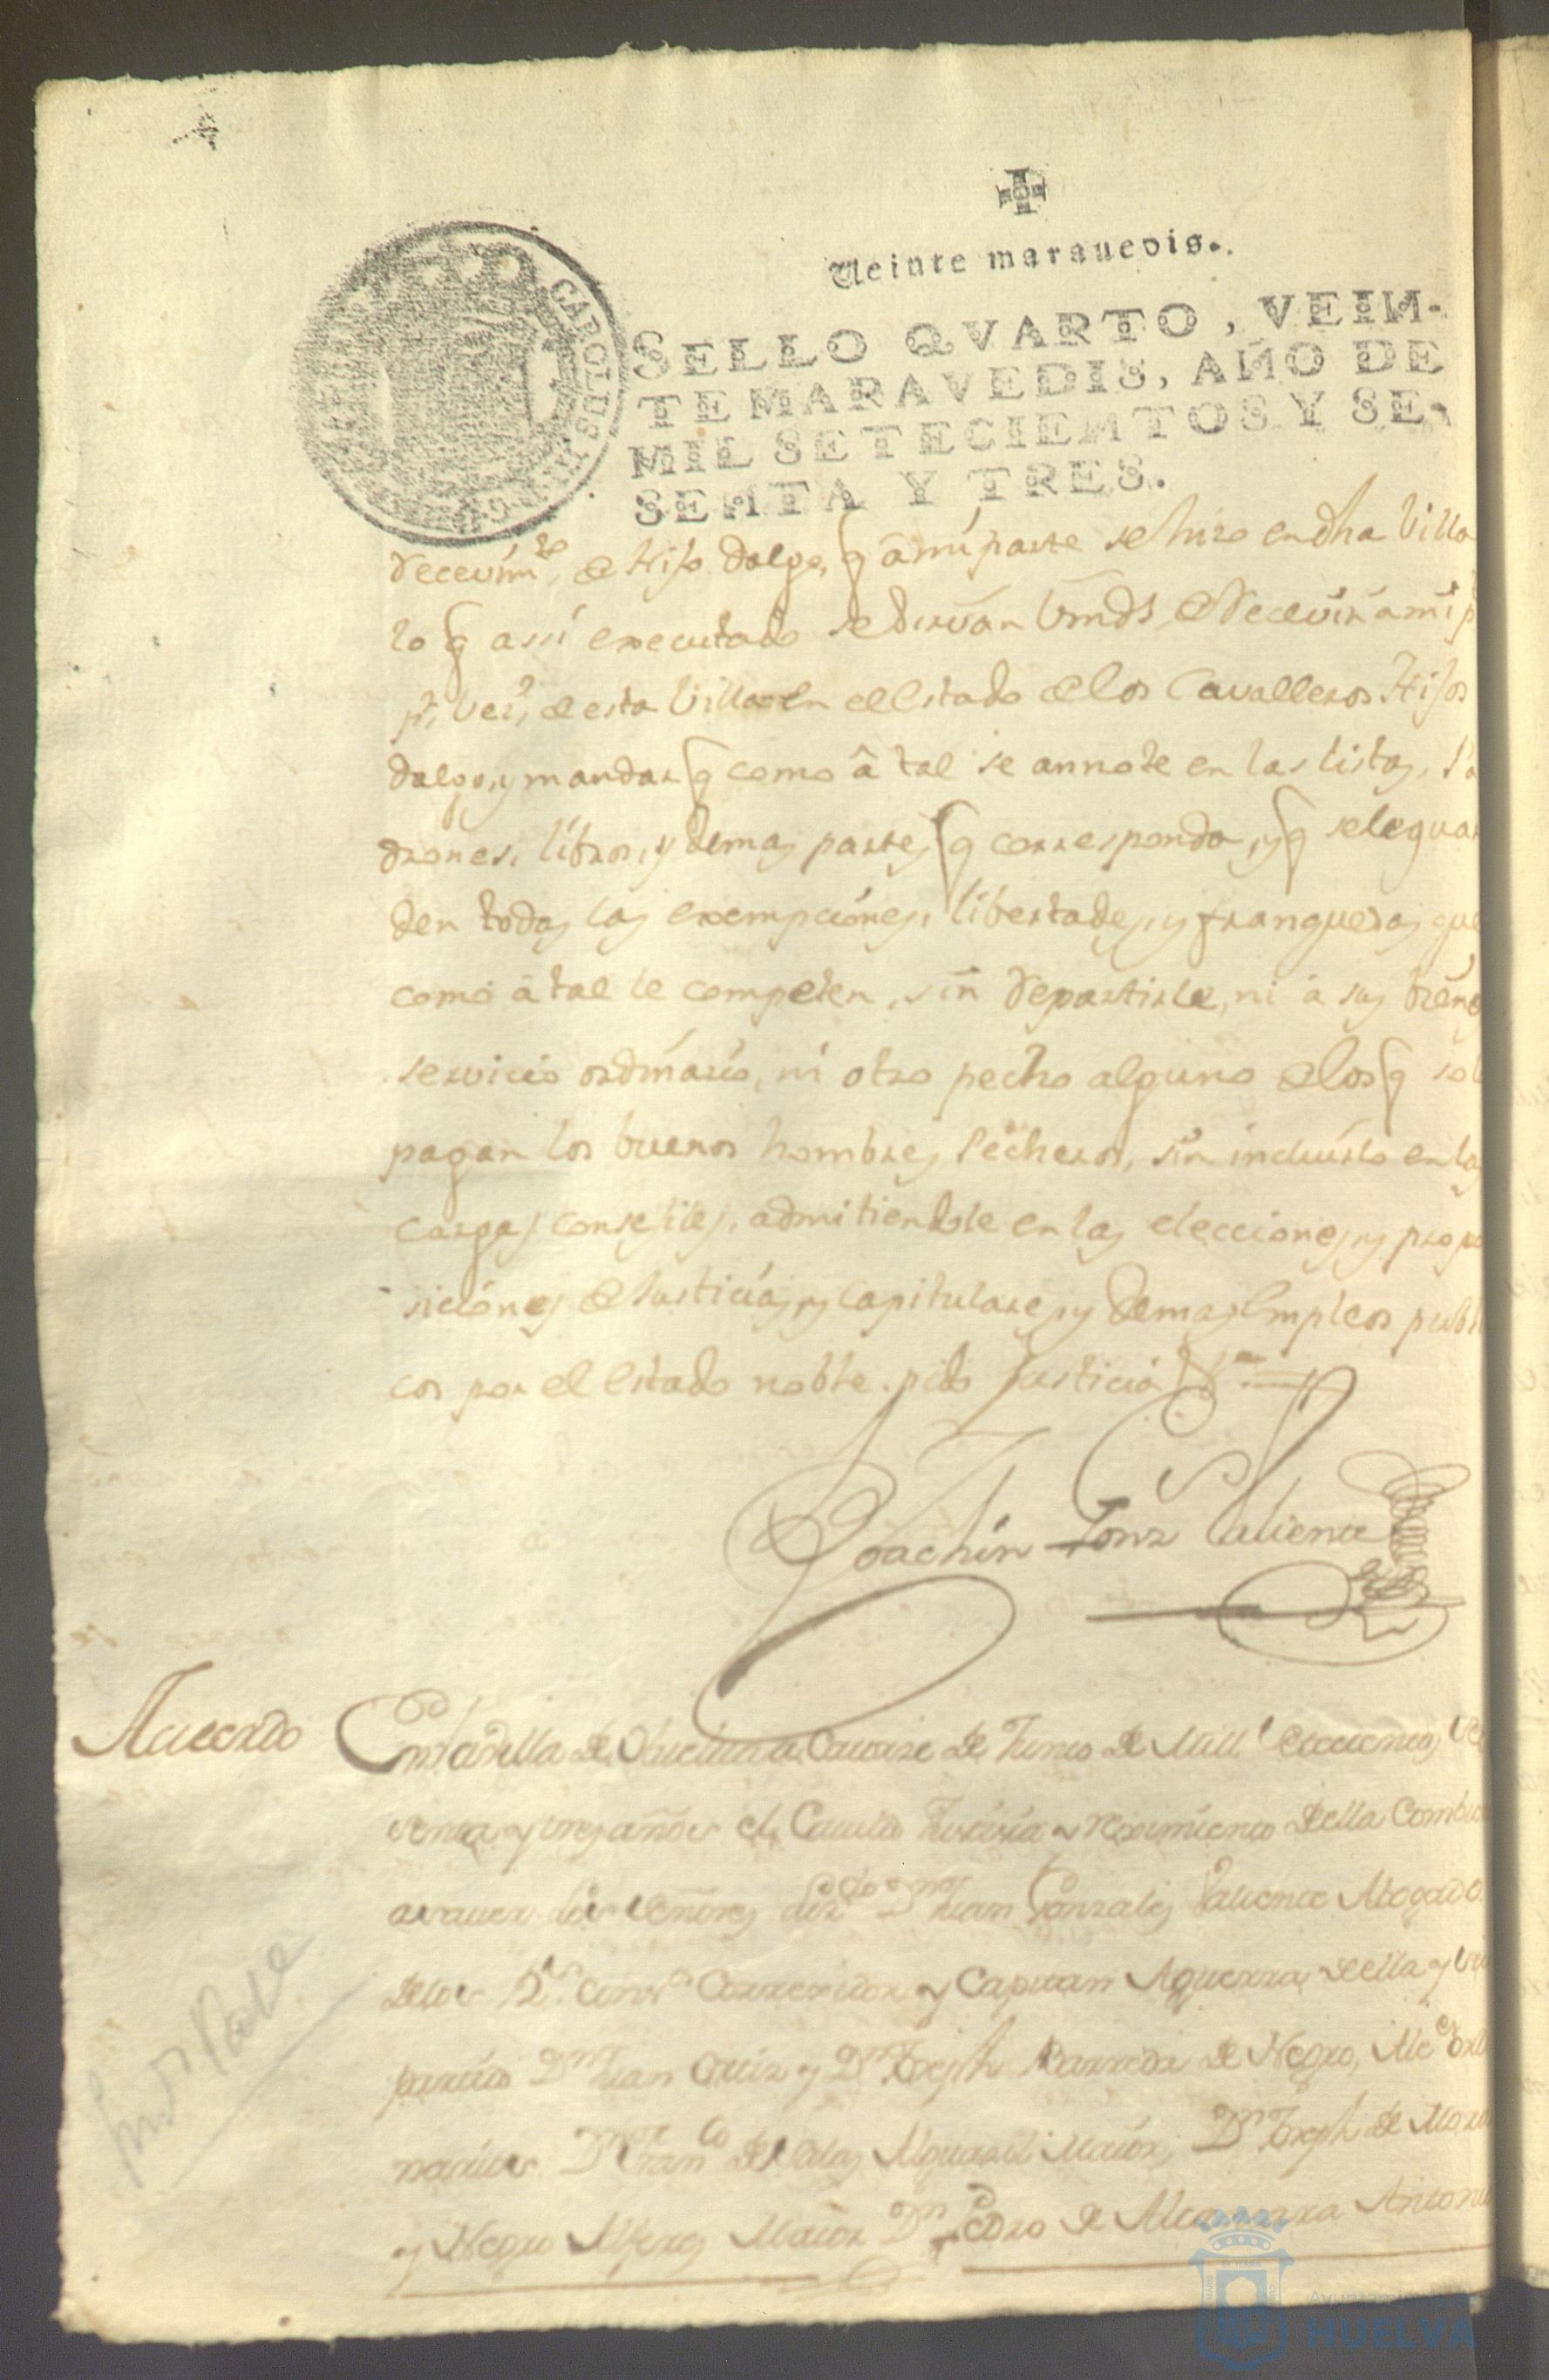 Veinte marauedis.
SELLO QVARTO, VEIN-
TE MARAVEDIS, AÑO DE
MIL SETECIENTOS Y SE-
SENTA Y TRES.
CAROLUS III
Recevim.to de Hijo dalgo, q a mi parte se hizo en dha Villa
lo q assi executado se sirvan Vmds de Recevir a mi p
p.r vez.o de esta Villa en el Estado de los Cavalleros Hijos
dalgo, y mandar q como â tal se annote en las listas, Pa
drones, libros, y demas partes q corresponda, y q se le guar
den todas las exempciones, libertades, y franquezas que
como â tal le competen, sin repartirle, ni a sus bienes
servicio ordinario, ni otro pecho alguno de los q sol
pagan los buenos hombres Pecheros, sin incluirlo en las
cargas consejiles, admitiendole en las elecciones, y propo
siciones de Justicias, y Capitulares, y demas Empleos publi
cos por el estado noble. pido Justicia
Joachin Gonz Valiente
Acuerdo En la Villa de Huelva a Catorze de Junio de Mill setecientos se
senta y tres años el Cavildo Justicia y reximiento della Combiene
a saver los señores liz.do D.n Juan Gonzales Valiente Abogado
de los R.s Cons.s Correxidor y Capitan Aguerra della y su
partido D.n Juan Ortiz y D.n Joseph Barreda de Negro, Alc.es ordi
narios D.n Fran.co de Salas Alguazil Maior, D.n Joseph de Mora
y Negro Alferez Maior D.n Pedro de Alcantara Antonio
Ayuntamiento
HUELVA